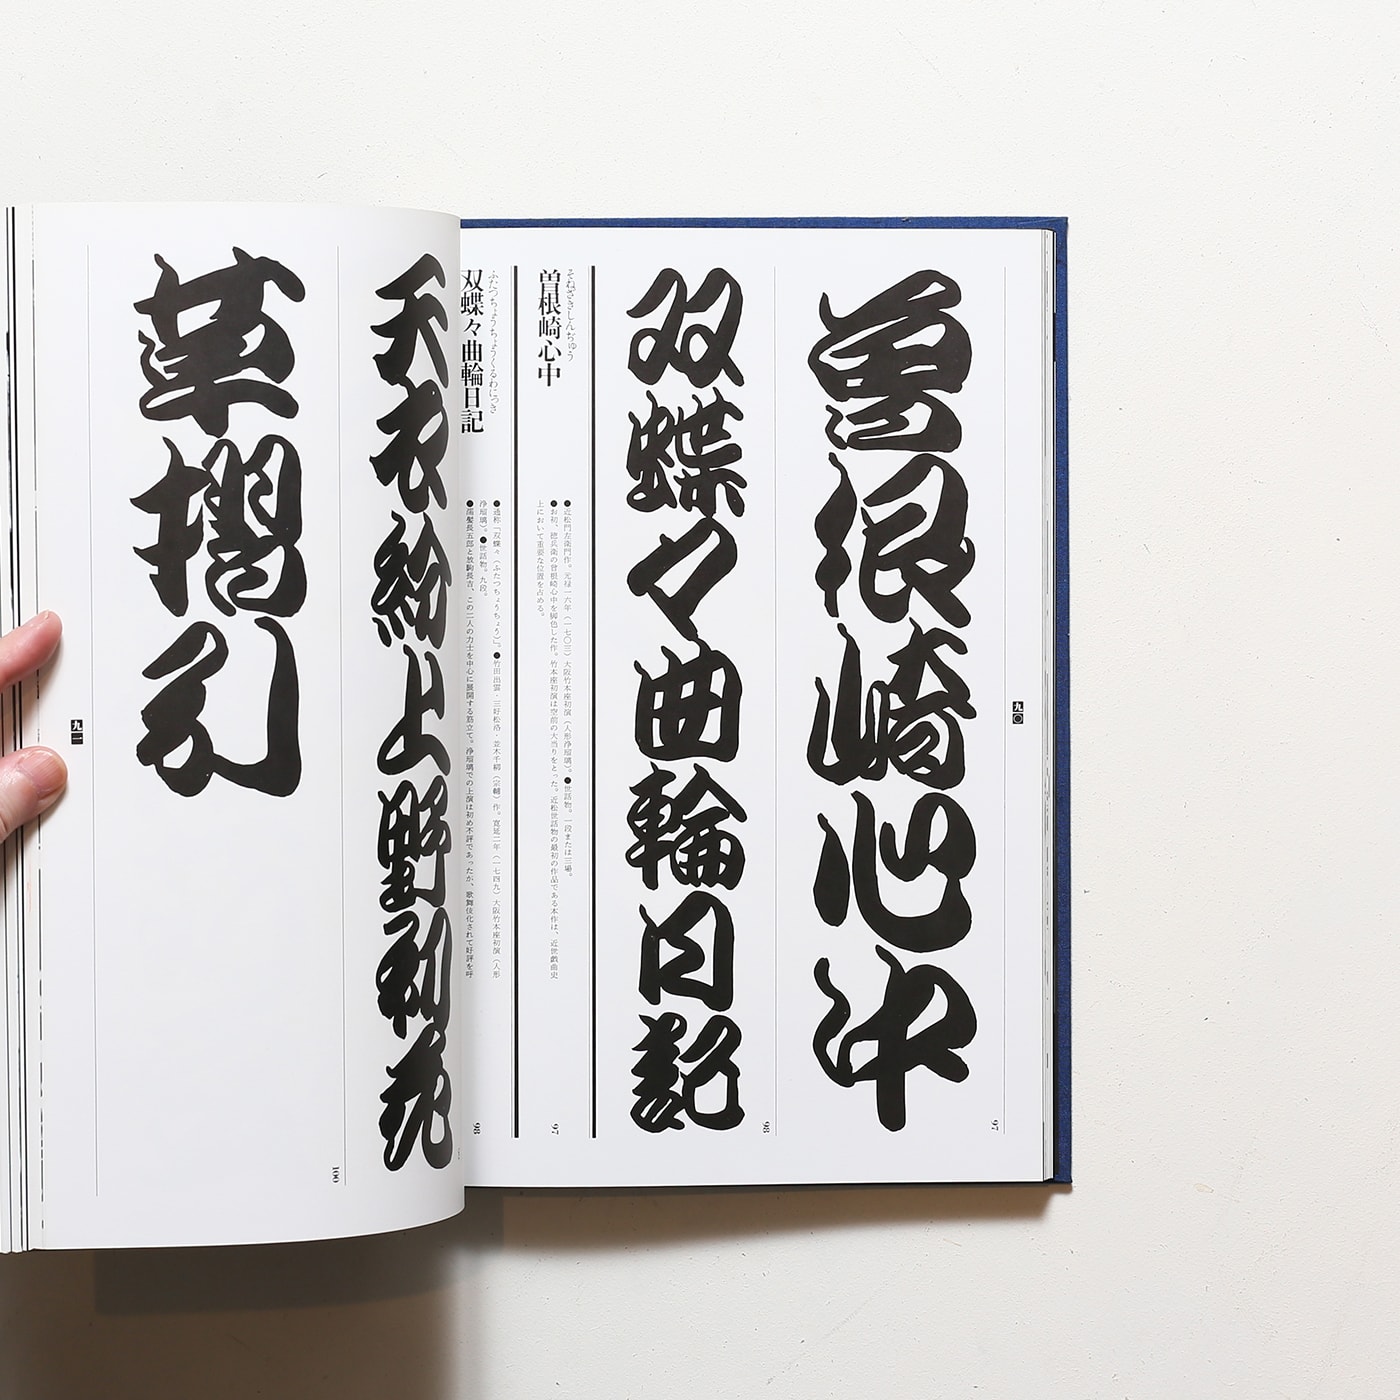 九〇
曽根崎心中
97
双蝶々曲輪日記
98
そねざきしんぢゅう
曽根崎心中
●近松門左衛門作。元禄一六年（一七〇三）大阪竹本座初演（人形浄瑠璃）。●世話物。一段または三場。
●お初、徳兵衛の曽根崎心中を脚色した作。竹本座初演は空前の大当りをとった。近松世話物の最初の作品である本作は、近世戯曲史
上において重要な位置を占める。
97
ふたつちょうちょうくるわにっき
双蝶々曲輪日記
●通称「双蝶々（ふたつちょうちょう）」。●竹田出雲・三好松洛・並木千柳（宗輔）作。寛延二年（一七四九）大阪竹本座初演（人形
浄瑠璃）。●世話物。九段。
●濡髪長五郎と放駒長吉、この二人の力士を中心に展開する筋立て。浄瑠璃での上演は初め不評であったが、歌舞伎化されて好評を呼
98
天衣紛上野初花
草摺引
100
九一